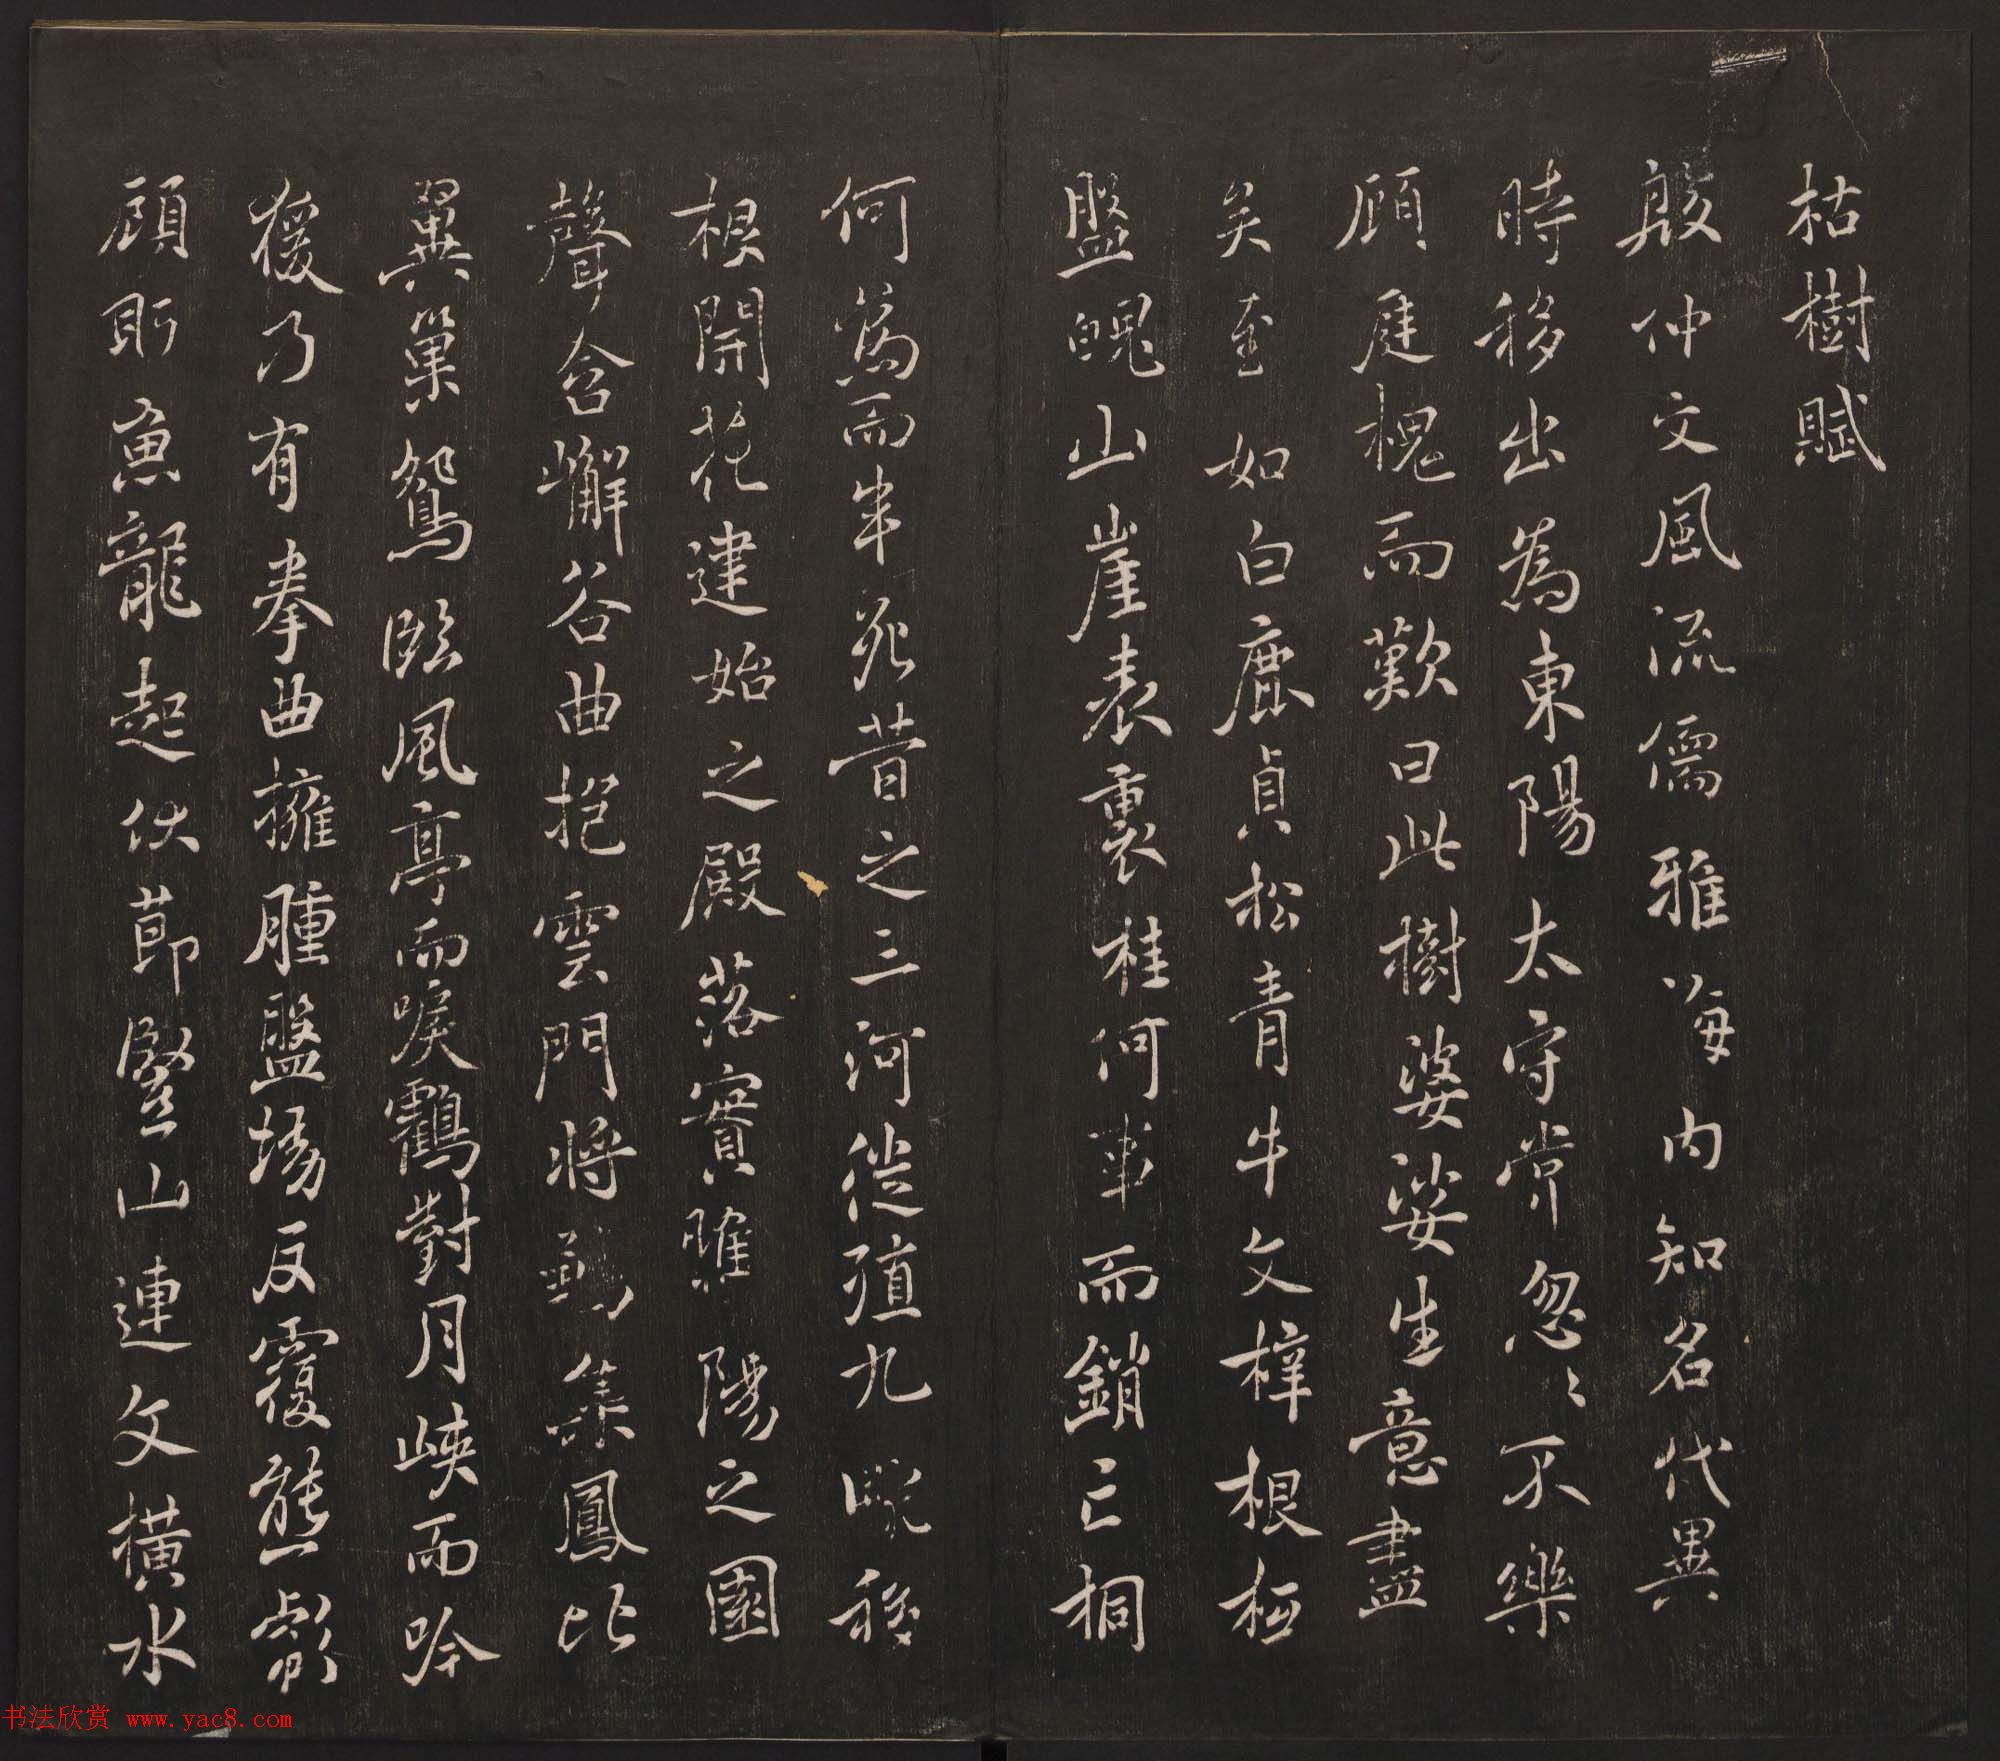 枯樹賦
殷仲文風流儒雅海内知名代異
時移出為東陽太守常忽〻不樂
顧庭槐而歎曰此樹婆娑生意盡
矣至如白鹿貞松青牛文梓根柢
盤魄山崖表裏桂何事而銷亡桐
何為而半死昔之三河徙殖九畹移
根開花建始之殿落實睢陽之園
聲含嶰谷曲抱雲門將鶵集鳳比
翼巢鴛臨風亭而唳鶴對月峽而吟
猨乃有拳曲擁腫盤坳反覆熊彪
顧眄魚龍起伏莭豎山連文橫水
书法欣赏 www.yac8.com